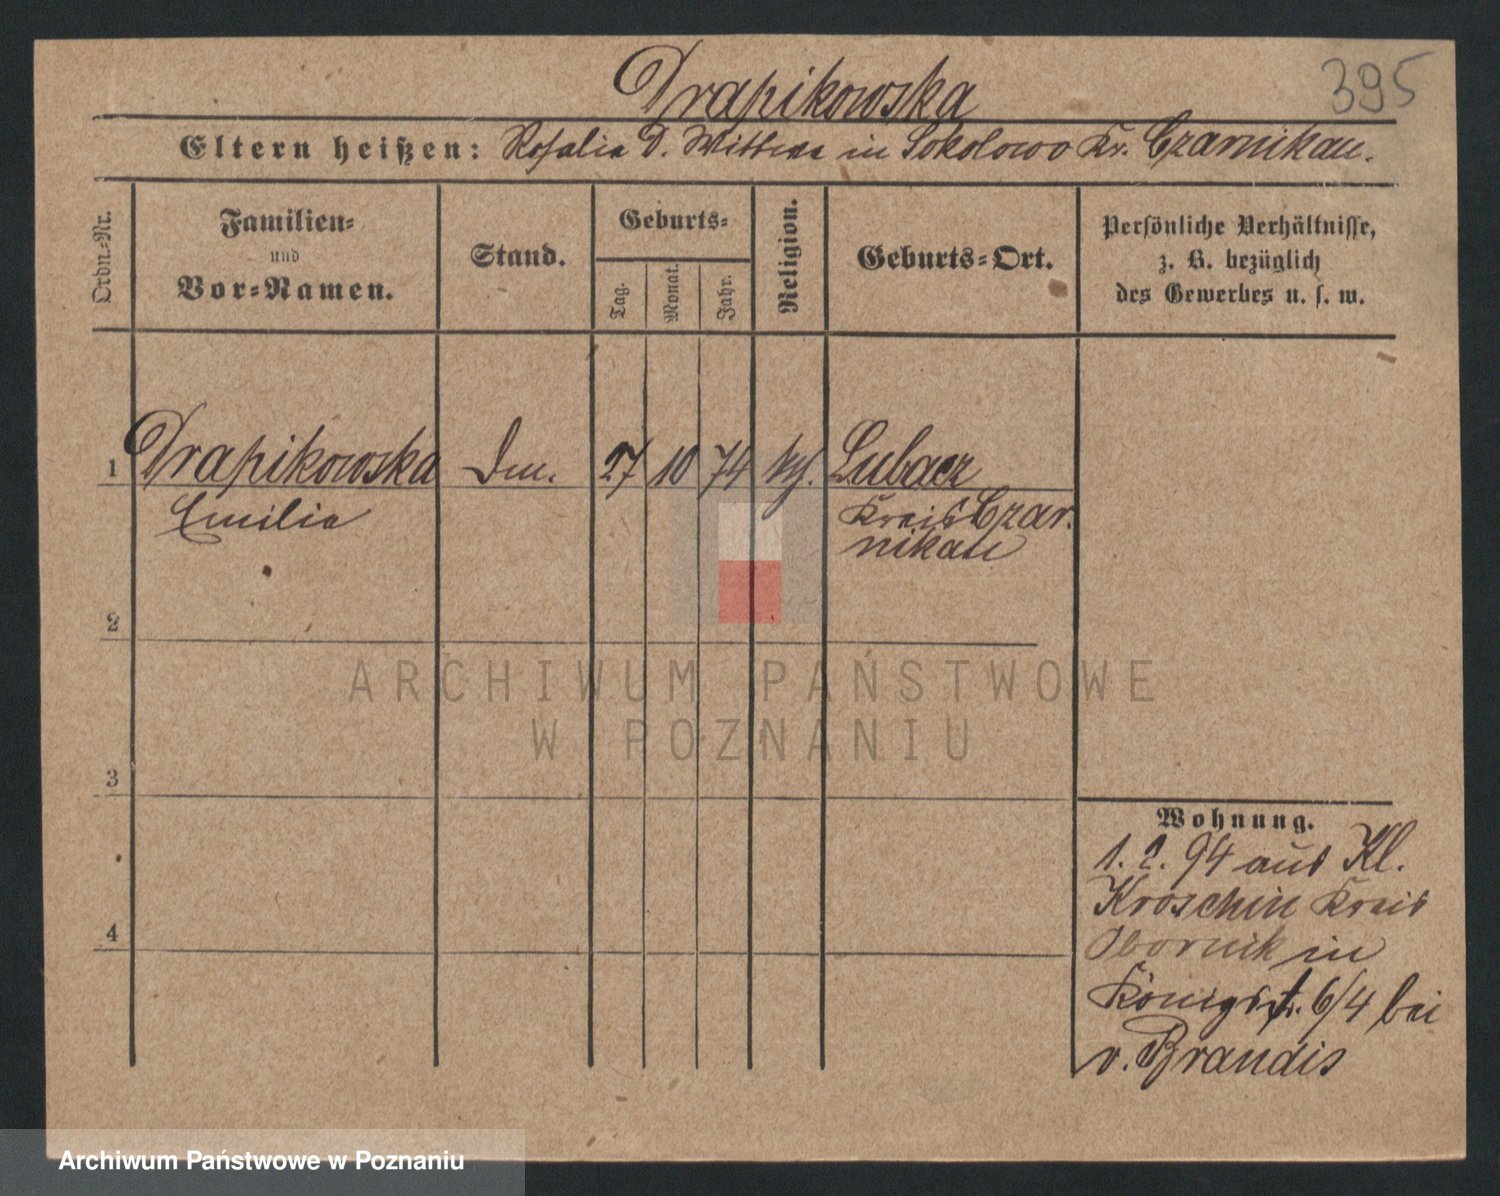 395
Drapikowska
Eltern heißen: Rosalia D. Wittwe in Sokolowo Kr. Czarnikau.
Ordn.-Nr.
Familien-
und
Vor-Namen.
Stand.
Geburts-
Tag.
Monat.
Jahr.
Religion.
Geburts-Ort.
Persönliche Verhältnisse,
z. B. bezüglich
des Gewerbes u. s. w.
1 Drapikowska 27 10 74 Lubacz
Emilie Kreis Czar-
nikau
2
3
4
Wohnung.
1. 2. 94 aus Kl.
Kroschin Kreis
Obornik in
Königst. 6/4 bei
v. Brandis
ARCHIWUM PAŃSTWOWE
W POZNANIU
Archiwum Państwowe w Poznaniu